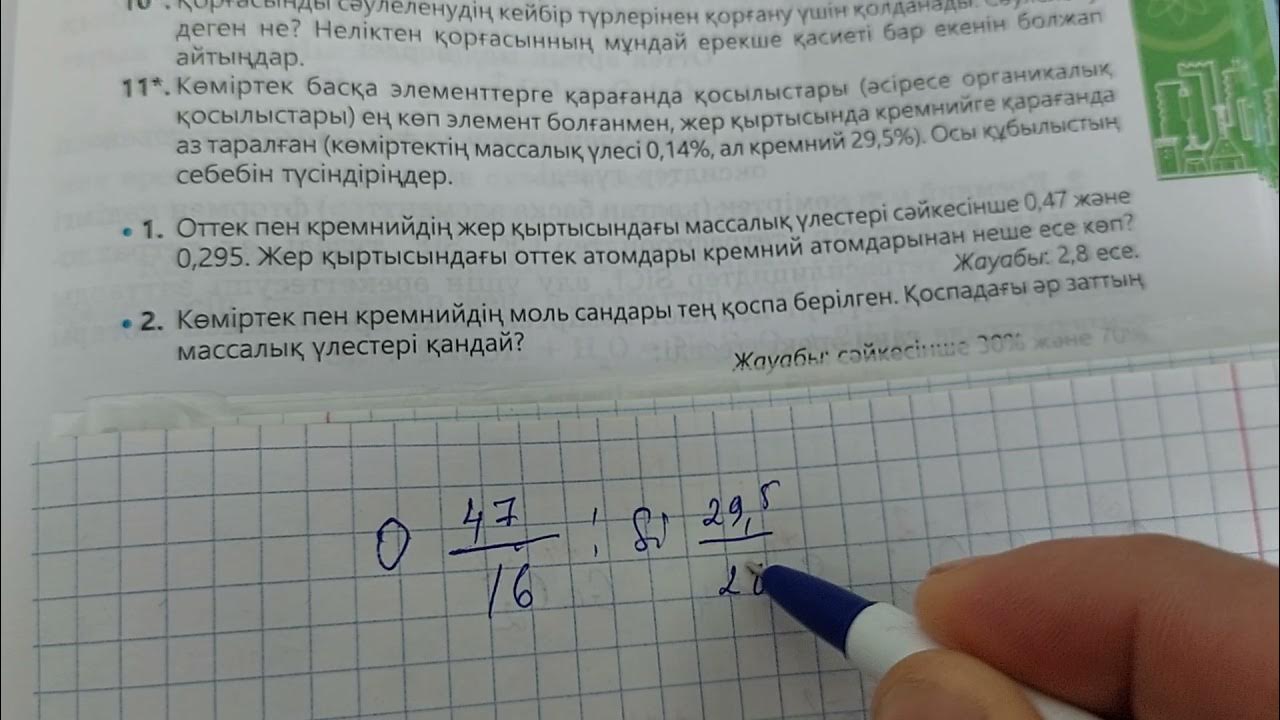 10*. Қорғасынды сәулеленудің кейбір түрлерінен қорғану үшін қолданады.
деген не? Неліктен қорғасынның мұндай ерекше қасиеті бар екенін болжап
айтыңдар.
11*. Көміртек басқа элементтерге қарағанда қосылыстары (әсіресе органикалық
қосылыстары) ең көп элемент болғанмен, жер қыртысында кремнийге қарағанда
аз таралған (көміртектің массалық үлесі 0,14%, ал кремний 29,5%). Осы құбылыстың
себебін түсіндіріңдер.
• 1. Оттек пен кремнийдің жер қыртысындағы массалық үлестері сәйкесінше 0,47 және
0,295. Жер қыртысындағы оттек атомдары кремний атомдарынан неше есе көп?
Жауабы: 2,8 есе.
• 2. Көміртек пен кремнийдің моль сандары тең қоспа берілген. Қоспадағы әр заттың
массалық үлестері қандай?
Жауабы: сәйкесінше 30% және 70%
O 47/16 : Si 29,5/2